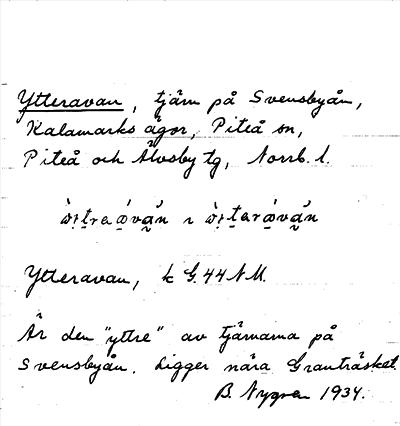 Ytteravan, tjärn på Svensbyån,
Kalamarks ägor, Piteå sn,
Piteå och Älvsby tg, Norrb. l.
Ytteravan, k G.44 NM.
Är den "yttre" av tjärnarna på
Svensbyån. Ligger nära Granträsket.
B. Nygren 1934.